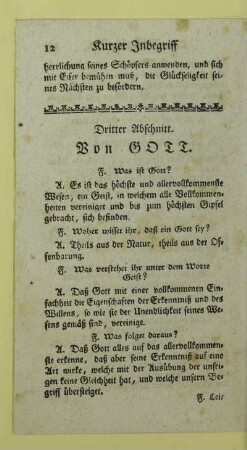 12 Kurzer Inbegriff
herrlichung seines Schöpfers anwenden, und sich
mit Eifer bemühen muß, die Glückseligkeit sei-
nes Nächsten zu befördern.
Dritter Abschnitt.
Von GOTT.
F. Was ist Gott?
A. Es ist das höchste und allervollkommenste
Wesen, ein Geist, in welchem alle Vollkommen-
heiten vereiniget und bis zum höchsten Gipfel
gebracht, sich befinden.
F. Woher wisset ihr, daß ein Gott sey?
A. Theils aus der Natur, theils aus der Of-
fenbarung.
F. Was verstehet ihr unter dem Worte
Geist?
A. Daß Gott mit einer vollkommenen Ein-
fachheit die Eigenschaften der Erkenntniß und des
Willens, so wie sie der Unendlichkeit seines We-
sens gemäß sind, vereinige.
F. Was folget daraus?
A. Daß Gott alles auf das allervollkommen-
ste erkenne, daß aber seine Erkenntniß auf eine
Art wirke, welche mit der Ausübung der unsri-
gen keine Gleichheit hat, und welche unsern Be-
griff übersteiget.
F. Lei-